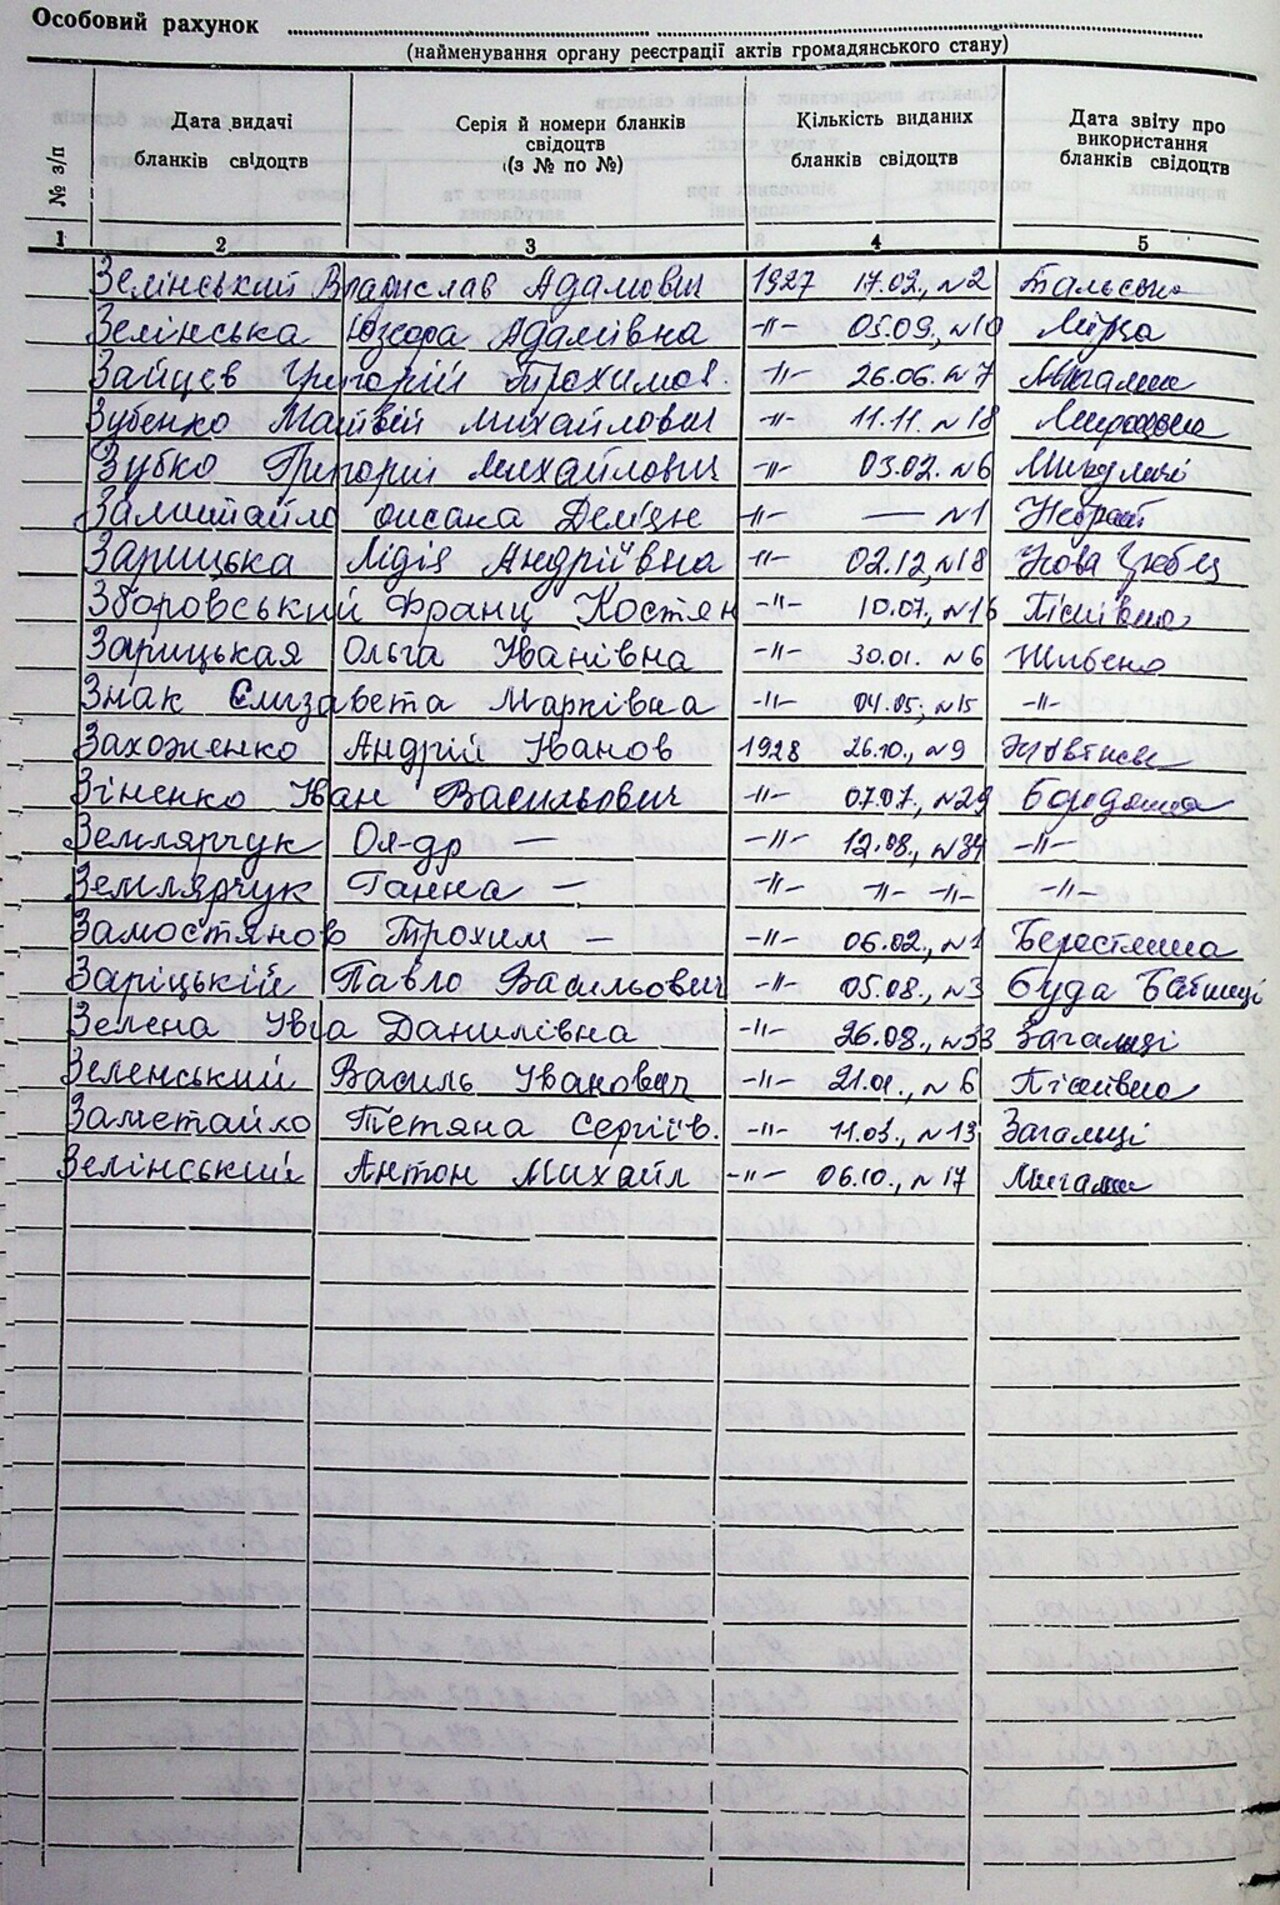 Особовий рахунок
(найменування органу реєстрації актів громадянського стану)
№ з/п
Дата видачі
бланків свідоцтв
Серія й номери бланків
свідоцтв
(з № по №)
Кількість виданих
бланків свідоцтв
Дата звіту про
використання
бланків свідоцтв
1 2 3 4 5
Зелінський Владислав Адамович 1927 17.02., №2
Зелінська Юзефа Адамівна -"- 05.09., №10 Мирча
Зайцев Григорій Трохимов. -"- 26.06. №7 Мигалки
Зубенко Матвій Михайлович -"- 11.11. №18
Зубко Григорій Михайлович -"- 03.02. №6 Микуличі
Дем'ян -"- — №1 Небрат
Зарицька Лідія Андріївна -"- 02.12, №18 Нова Гребля
Зборовський Франц Костян -"- 10.07., №16 Пісківка
Зарицькая Ольга Іванівна -"- 30.01. №6 Шибене
Знак Єлизавета Марківна -"- 04.05; №15 -"-
Захоженко Андрій Іванов 1928 26.10., №9
Зіненко Іван Васильович -"- 07.07., №29 Бородянка
Землярчук Ол-др — -"- 12.08., №34 -"-
Землярчук Ганна — -"- -"- -"- -"-
Замостянов Трохим — -"- 06.02., №1 Берестянка
Заріцькій Павло Васильович -"- 05.08., №3 Буда Бабинці
Зелена Івга Данилівна -"- 26.08., №33 Загальці
Зеленський Василь Іванович -"- 21.01., №6 Пісківка
Заметайко Тетяна Сергіїв. -"- 11.03., №13 Загальці
Зелінський Антон Михайл -"- 06.10., №17 Мигалки